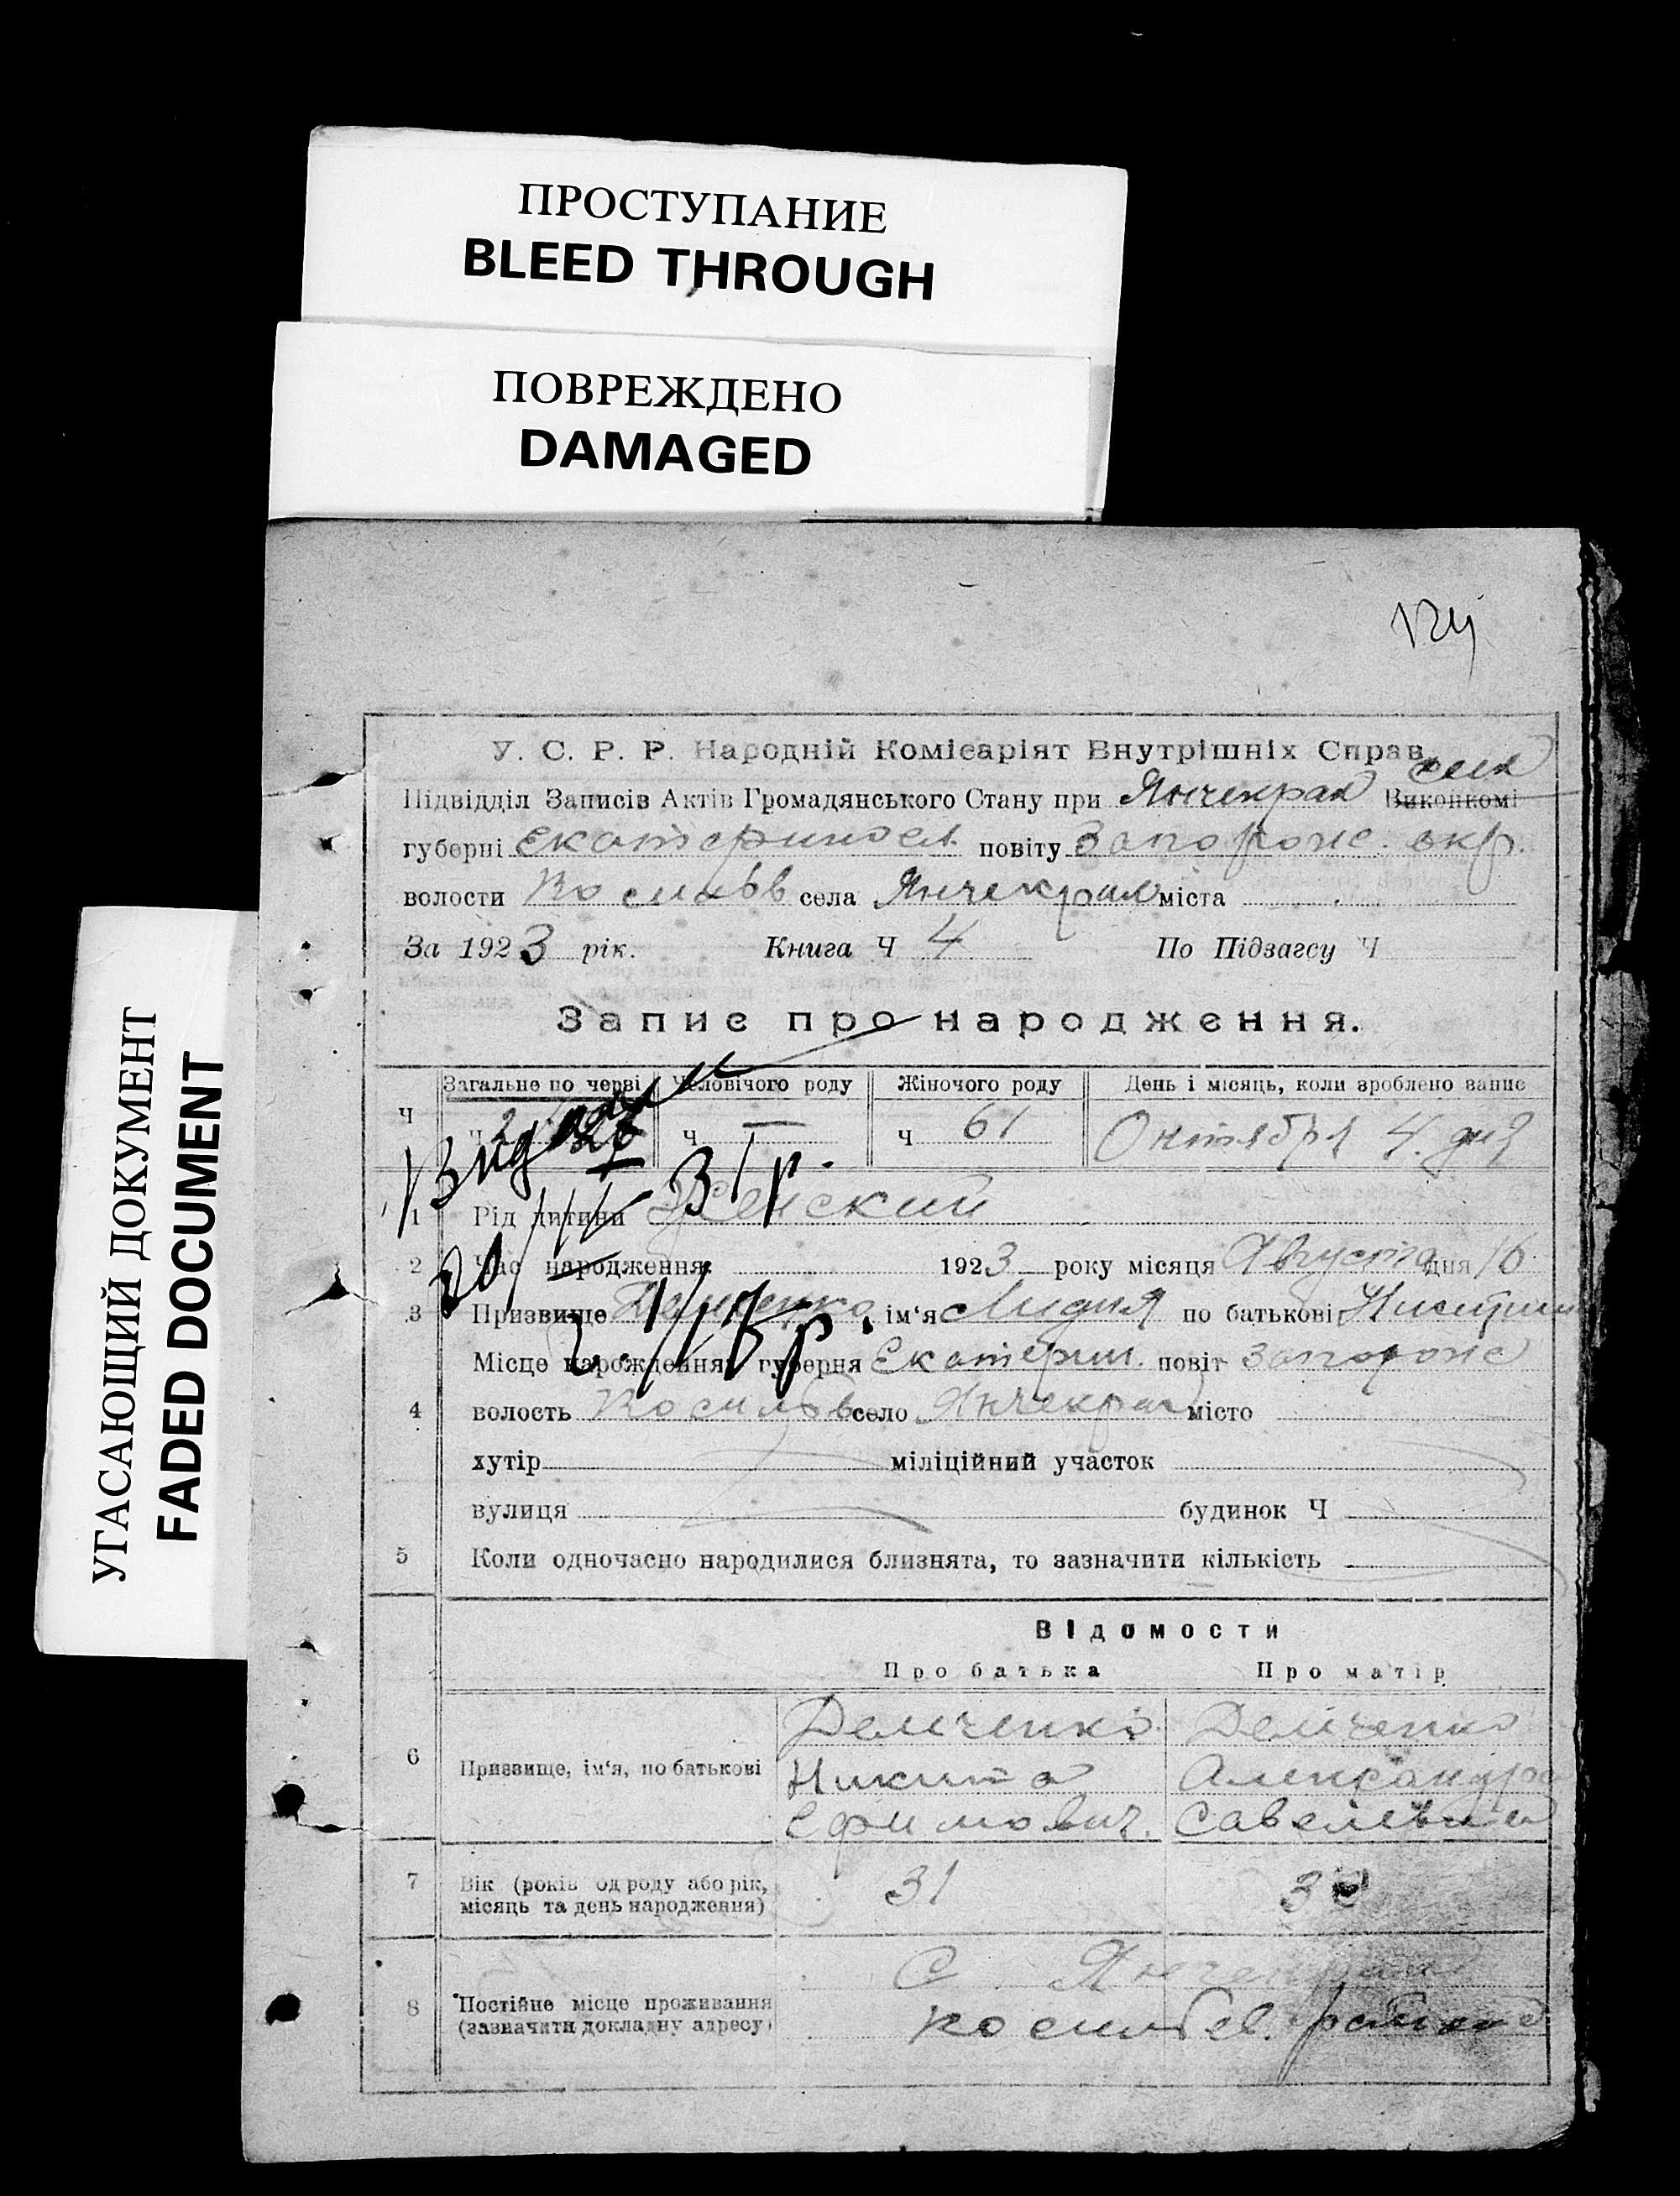 ПРОСТУПАНИЕ
BLEED THROUGH
ПОВРЕЖДЕНО
DAMAGED
УГАСАЮЩИЙ ДОКУМЕНТ
FADED DOCUMENT
У. С. Р. Р. Народній Комісаріят Внутрішніх Справ
Підвідділ Записів Актів Громадянського Стану при Янчекрак Виконкомі
губерні Екатериносл. повіту Запорож. окр.
волости села Янчекрак міста
За 1923 рік. Книга Ч 4 По Підзагсу Ч
Запис про народження.
Загальне по черві Чоловічого роду Жіночого роду День і місяць, коли зроблено запис
Ч Ч Ч — Ч 61 Октября 4 дня
1 Рід дитини Женский
2 Час народження: 1923 року місяця Августа дня 16
3 Призвище Демченко ім‘я Лидия по батькові
Місце народження: губерня Екатерин. повіт Запорож
4 волость село Янчекрак місто
хутір міліційний участок
вулиця будинок Ч
5 Коли одночасно народилися близнята, то зазначити кількість
Відомости
Про батька Про матір
6 Призвище, ім‘я, по батькові
Демченко Демченко
Никита Александра
Ефимович. Савельевна
7 Вік (років од роду або рік, місяць та день народження) 31
8 Постійне місце проживання (зазначити докладну адресу)
С Янчекрак
района